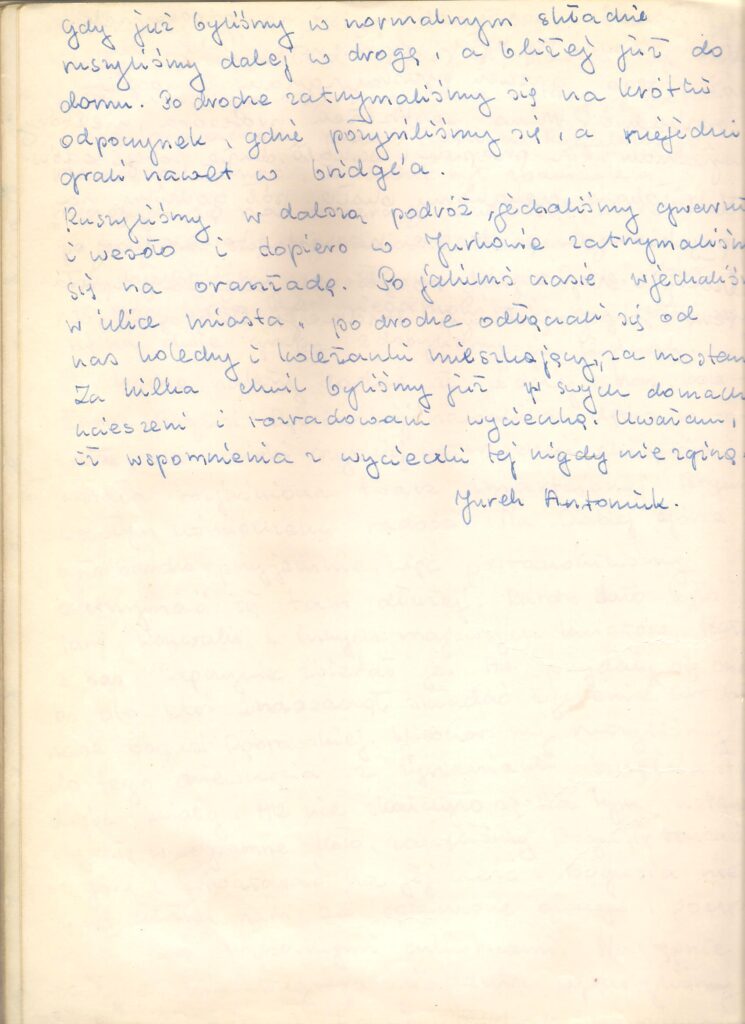 gdy już byliśmy w normalnym składzie
ruszyliśmy dalej w drogę, a bliżej już do
domu. Po drodze zatrzymaliśmy się na krótki
odpoczynek, gdzie pożywiliśmy się, a niejedni
grali nawet w bridge'a.
Ruszyliśmy w dalszą podróż, jechaliśmy gwarni
i wesoło i dopiero w Jurkowie zatrzymaliśm
się na oranżadę. Po jakimś czasie wjechaliś
w ulice miasta, po drodze odłączali się od
nas koledzy i koleżanki mieszkający za mostem
Za kilka chwil byliśmy już w swych domach
ucieszeni i rozradowani wycieczką. Uważam,
iż wspomnienia z wycieczki tej nigdy nie zginą.
Jurek Antoniuk.